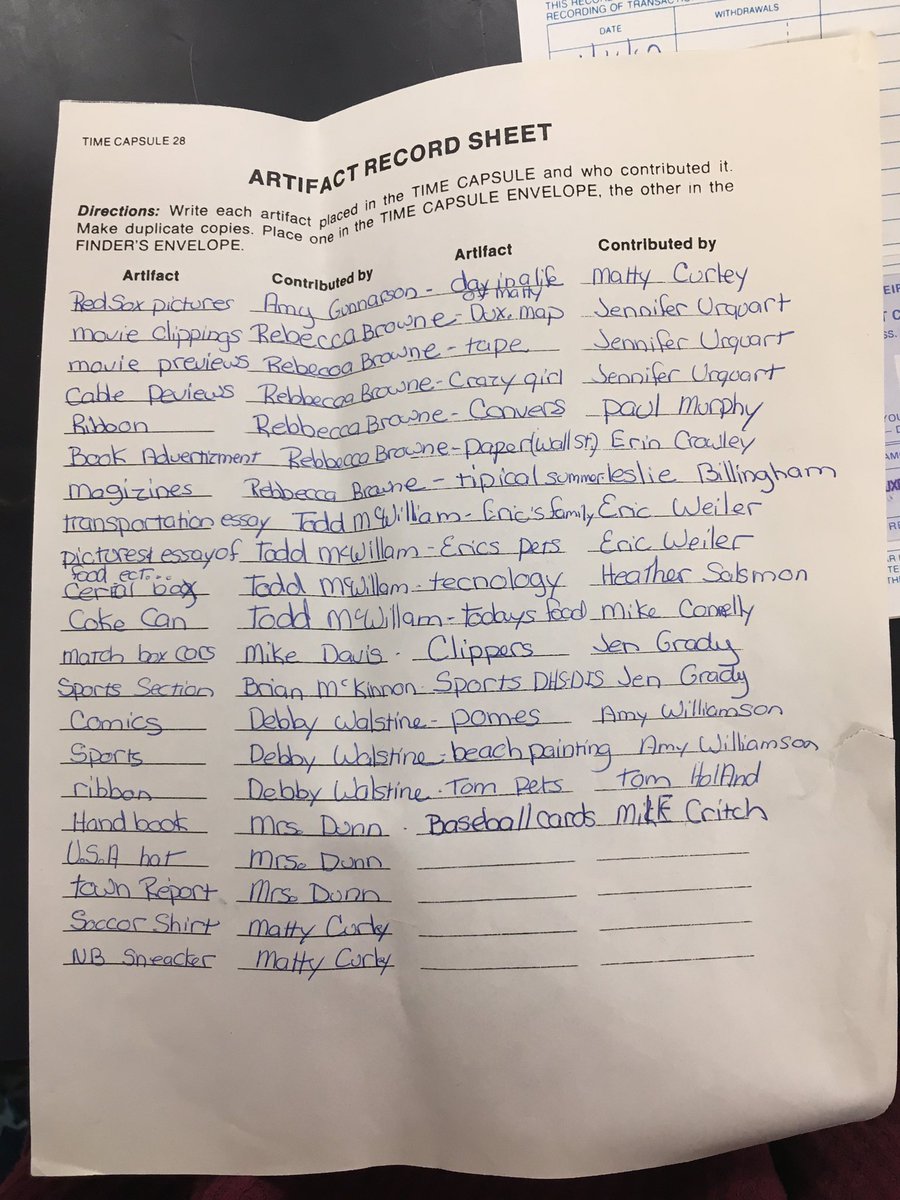 THIS RECO
RECORDING OF TRANSAC
DATE
WITHDRAWALS
TIME CAPSULE 28
ARTIFACT RECORD SHEET
Directions: Write each artifact placed in the TIME CAPSULE and who contributed it.
Make duplicate copies. Place one in the TIME CAPSULE ENVELOPE, the other in the
FINDER'S ENVELOPE.
Artifact Contributed by Artifact Contributed by
Red Sox pictures Amy Gunnarson - day in a life of matty Matty Curley
movie clippings Rebecca Browne - Dux. map Jennifer Urquart
movie previews Rebecca Browne - tape Jennifer Urquart
Cable Peviews Rebbecca Browne - Crazy girl Jennifer Urquart
Ribbon Rebbecca Browne - Convers Paul Murphy
Book Advertizment Rebbecca Browne - paper (wall st.) Erin Crowley
magizines Rebbecca Browne - tipical summer leslie Billingham
transportation essay Todd McWilliam - Eric's family Eric Weiler
picturest essay of food ect... Todd McWillam - Erics pets Eric Weiler
Cerial box Todd McWillam - tecnology Heather Salsmon
Coke Can Todd McWillam - todays food Mike Conelly
match box cars Mike Davis - Clippers Jen Grady
Sports Section Brian McKinnon - Sports DHS-DIS Jen Grady
Comics Debby Walstine - pomes Amy Williamson
Sports Debby Walstine - beach painting Amy Williamson
ribbon Debby Walstine - Tom Pets Tom Holand
Hand book Mrs. Dunn - Baseball cards MikE Critch
U.S.A hat Mrs. Dunn
town Report Mrs. Dunn
Soccor Shirt Matty Curly
NB Sneacker Matty Curly